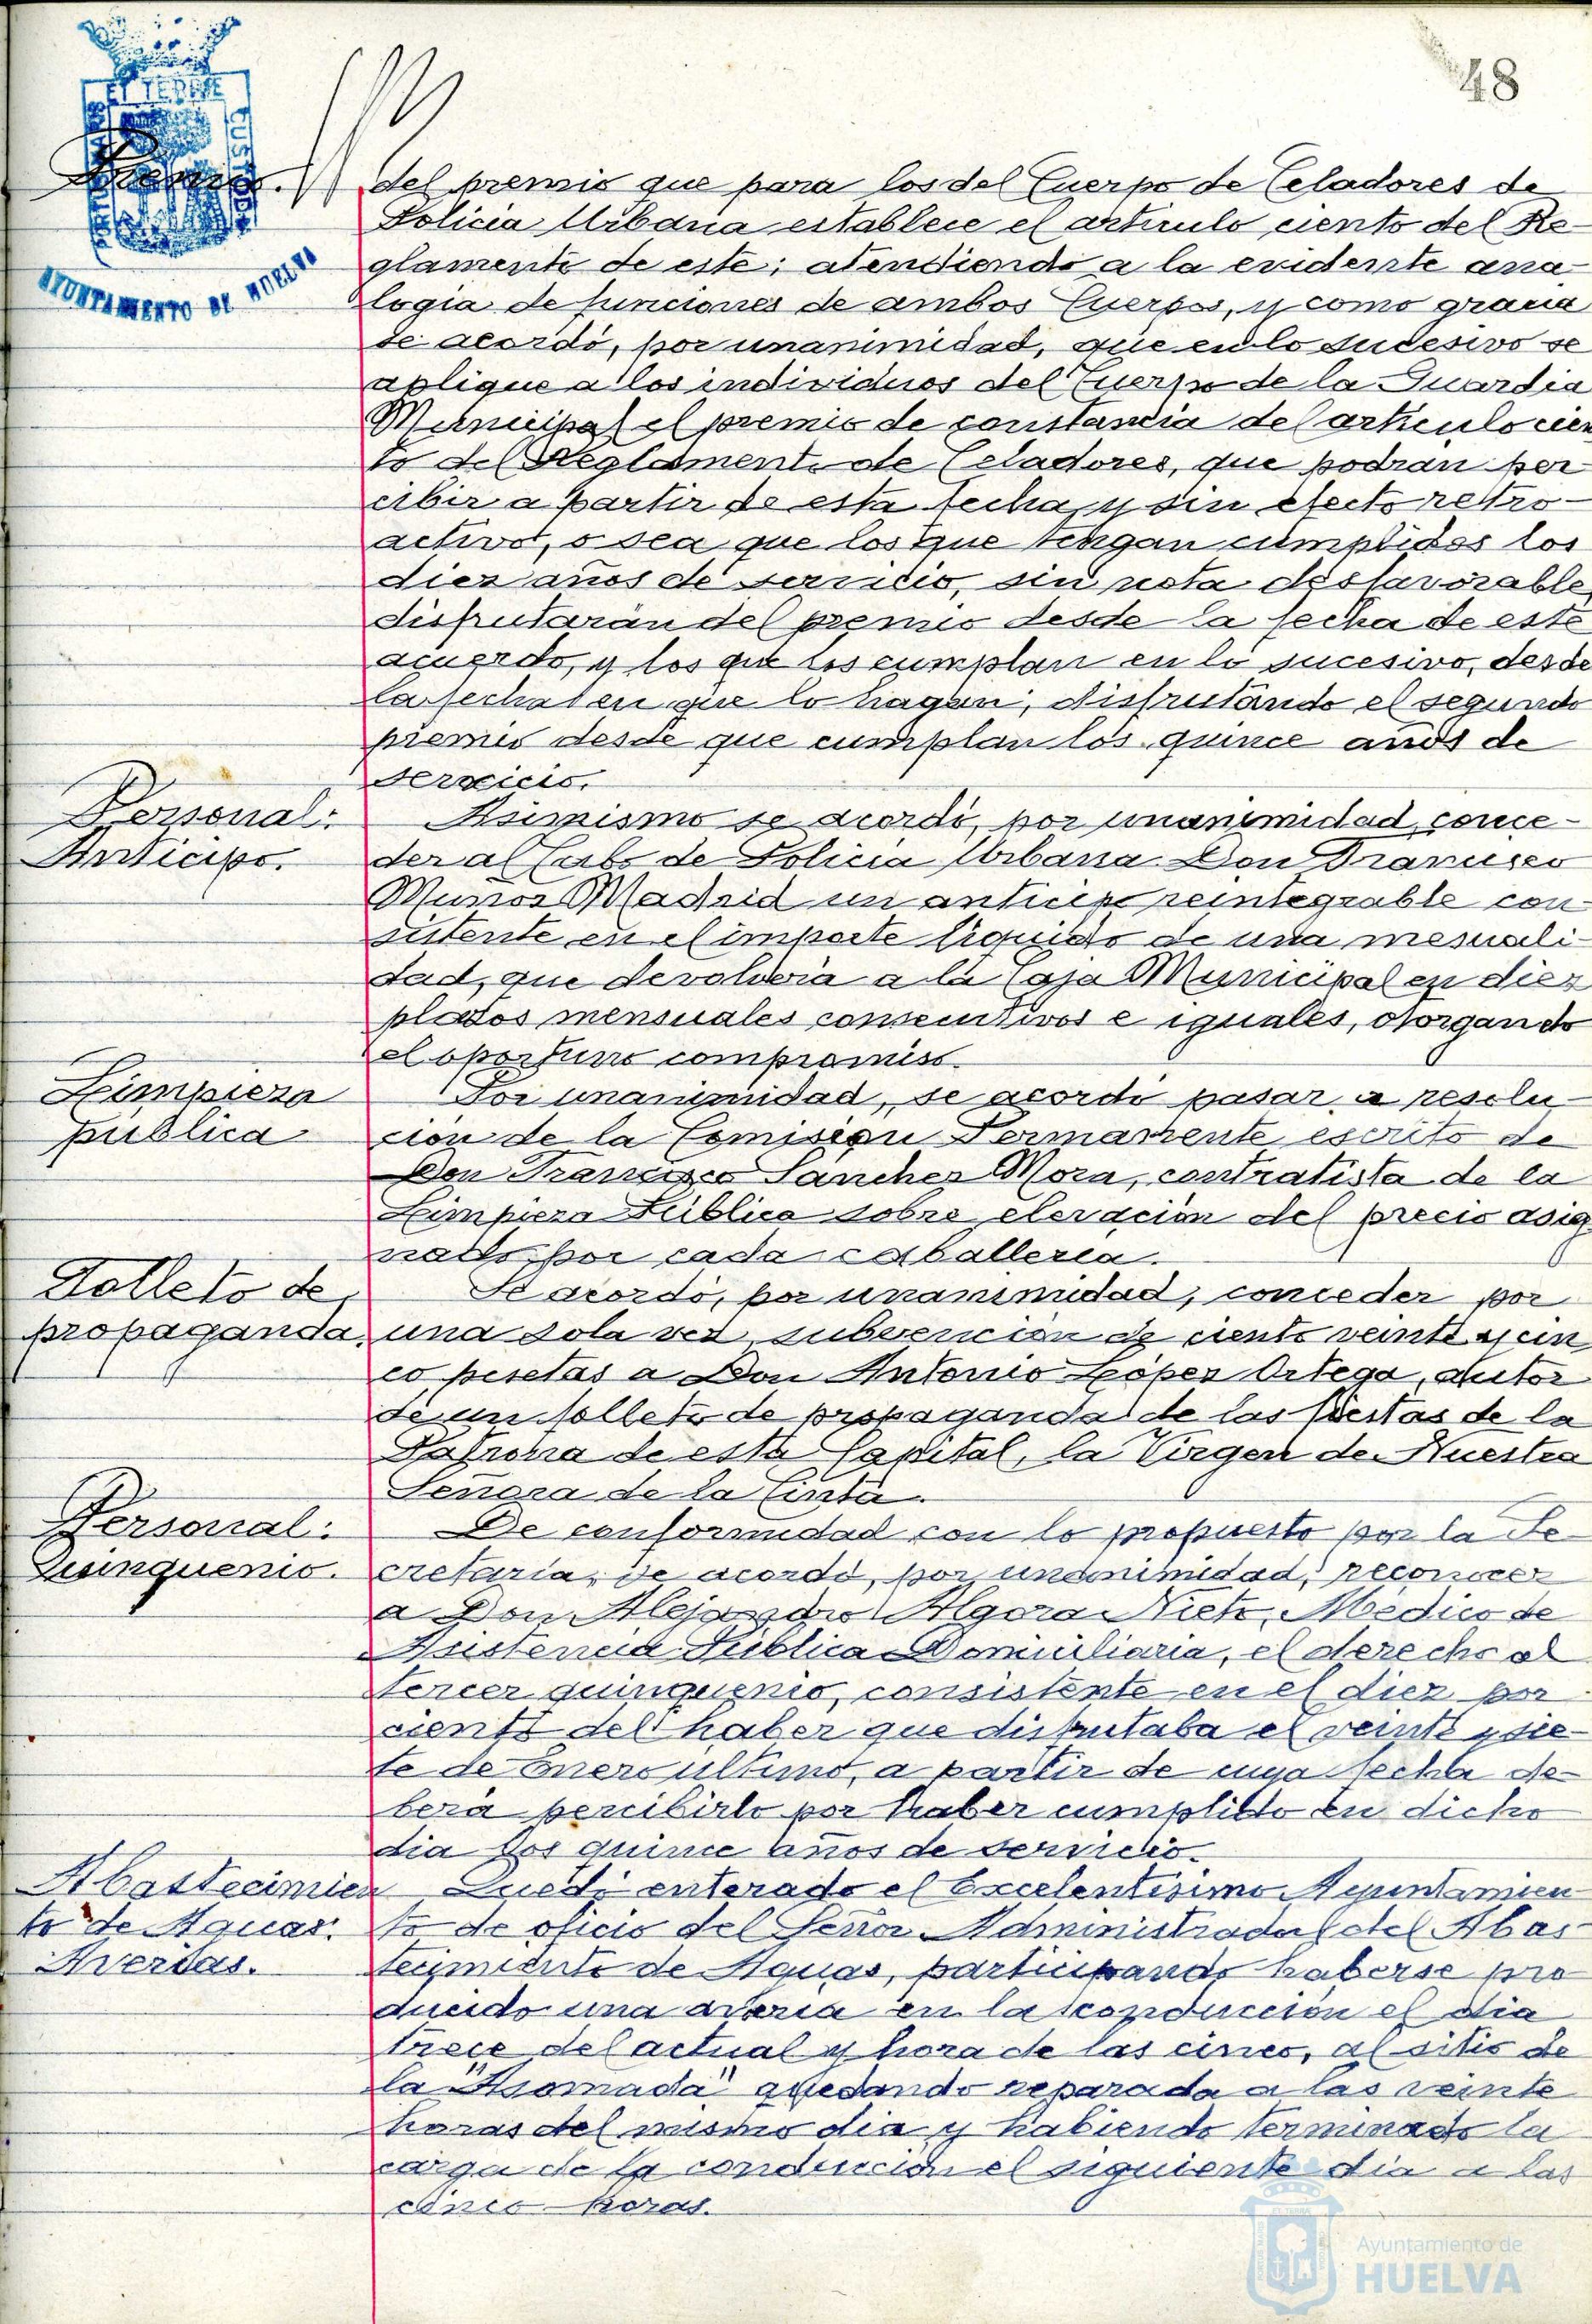 48
ET TERRE
CUSTODIA
AYUNTAMIENTO DE HUELVA
Premio.
del premio que para los del Cuerpo de Celadores de
Policia Urbana establece el articulo ciento del Re-
glamento de este; atendiendo a la evidente ana-
logia de funciones de ambos Cuerpos, y como gracia
se acordó, por unanimidad, que en lo sucesivo se
aplique a los individuos del Cuerpo de la Guardia
Municipal el premio de constancia del articulo cien
to del Reglamento de Celadores, que podrán per-
cibir a partir de esta fecha y sin efecto retro-
activo, o sea que los que tengan cumplidos los
diez años de servicio, sin nota desfavorable,
disfrutarán del premio desde la fecha de este
acuerdo, y los que los cumplan en lo sucesivo, desde
la fecha en que lo hagan; disfrutando el segundo
premio desde que cumplan los quince años de
servicio.
Personal:
Anticipo.
Asimismo se acordó, por unanimidad, conce-
der al Cabo de Policia Urbana Don Francisco
Muñoz Madrid un anticipo reintegrable con-
sistente en el importe liquido de una mensuali-
dad, que devolverá a la Caja Municipal en diez
plazos mensuales consecutivos e iguales, otorgando
el oportuno compromiso.
Limpieza
pública
Por unanimidad, se acordó pasar a resolu-
ción de la Comisión Permanente escrito de
Don Francisco Sanchez Mora, contratista de la
Limpieza Pública sobre elevación del precio asig
nado por cada caballeria.
Folleto de
propaganda.
Se acordó, por unanimidad, conceder por
una sola vez subvencion de ciento veinte y cin
co pesetas a Don Antonio López Ortega, autor
de un folleto de propaganda de las fiestas de la
Patrona de esta Capital, la Virgen de Nuestra
Señora de la Cinta.
Personal:
Quinquenio.
De conformidad con lo propuesto por la Se-
cretaria, se acordó, por unanimidad, reconocer
a Don Alejandro Algora Nieto, Médico de
Asistencia Pública Domiciliaria, el derecho al
tercer quinquenio, consistente en el diez por
ciento del haber que disfrutaba el veinte y sie-
te de Enero ultimo, a partir de cuya fecha de-
berá percibirlo por haber cumplido en dicho
dia los quince años de servicio.
Abastecimien
to de Aguas.
Averias.
Quedó enterado el Excelentisimo Ayuntamien-
to de oficio del Señor Administrador del Abas-
tecimiento de Aguas, participando haberse pro
ducido una averia en la conducción el dia
trece del actual y hora de las cinco, al sitio de
la "Asomada" quedando reparada a las veinte
horas del mismo dia y habiendo terminado la
carga de la conducción el siguiente dia a las
cinco horas.
Ayuntamiento de
HUELVA